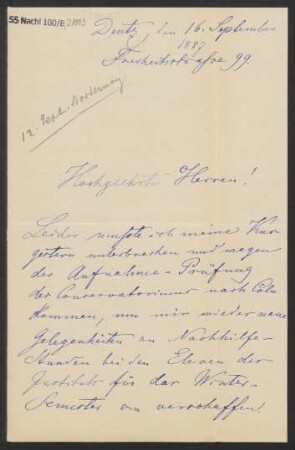 55 Nachl 100/B,
Deutz, den 16. September
1887
Freiheitstrasse 99.
12.
Hochgeehrte Herren!
Leider musste ich meine Kur
gestern unterbrechen und wegen
der Aufnahme-Prüfung
des Conservatoriums nach Cöln
kommen, um mir wieder neue
Gelegenheiten an Nachhilfe-
Stunden bei den Eleven des
Instituts für das Winter-
Semester zu verschaffen.